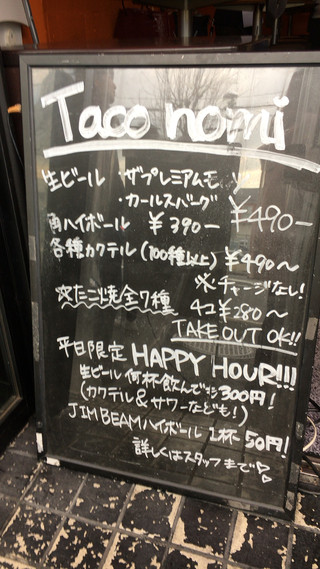 Taco nomi
生ビール ・ザプレミアムモルツ
・カールスバーグ ¥490-
角ハイボール ¥390-
各種カクテル(100種以上) ¥490～
※チャージなし!
☆たこ焼全7種 4コ¥280～
TAKE OUT OK!!
平日限定 HAPPY HOUR!!!
生ビール 何杯飲んでも 300円!
(カクテル&サワーなども!)
JIM BEAMハイボール 1杯 50円!
詳しくはスタッフまで